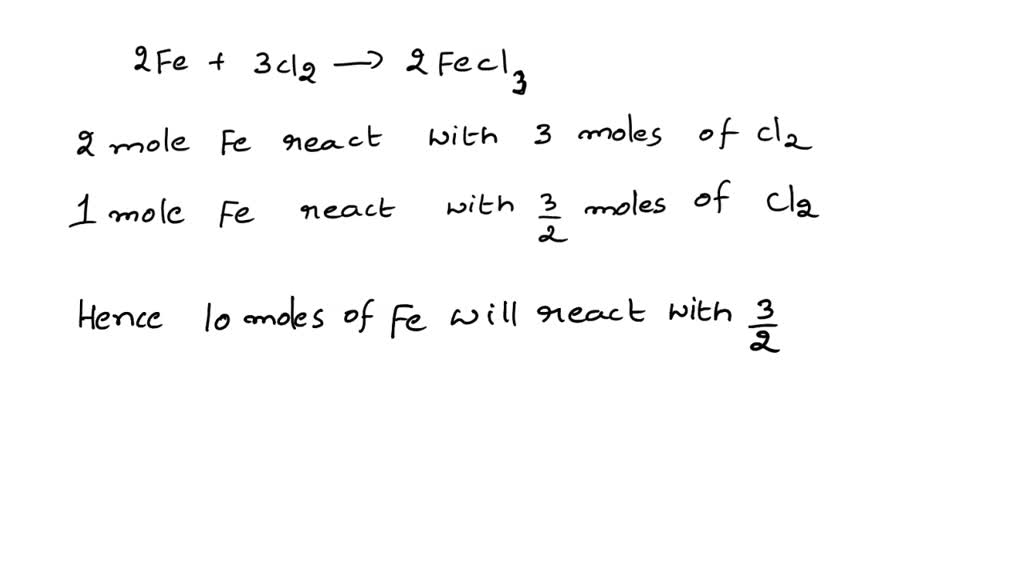 2Fe + 3Cl2 → 2FeCl3
2 mole Fe react with 3 moles of Cl2
1 mole Fe react with 3/2 moles of Cl2
Hence 10 moles of Fe will react with 3/2